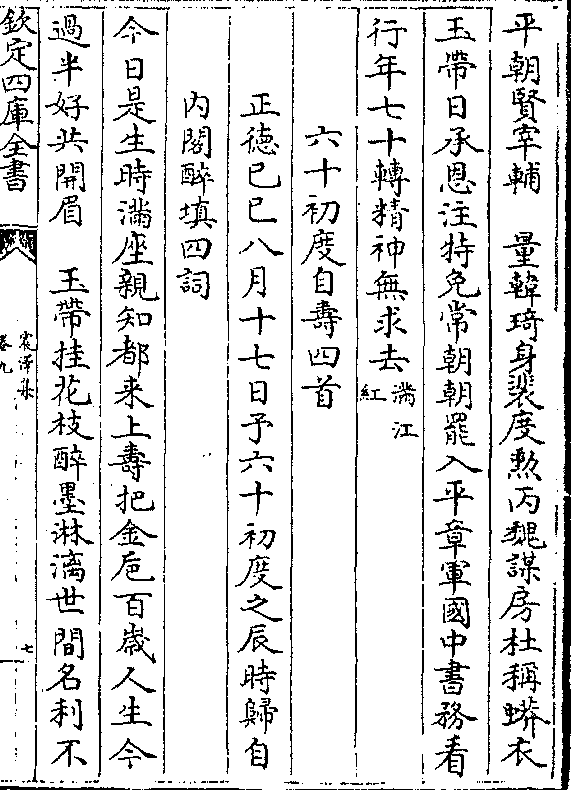 平朝賢宰輔　量韓琦身裴度勲丙魏謀房杜稱蟒衣
玉帶日承恩注特免常朝朝罷入平章軍國中書務看
行年七十轉精神無求去滿江紅
六十初度自壽四首
正德己巳八月十七日予六十初度之辰時歸自
内閣醉填四詞
今日是生時滿座親知都来上壽把金巵百歳人生今
過半好共開眉　玉帶挂花枝醉墨淋漓世間名利不
欽定四庫全書
震澤集
卷九
七